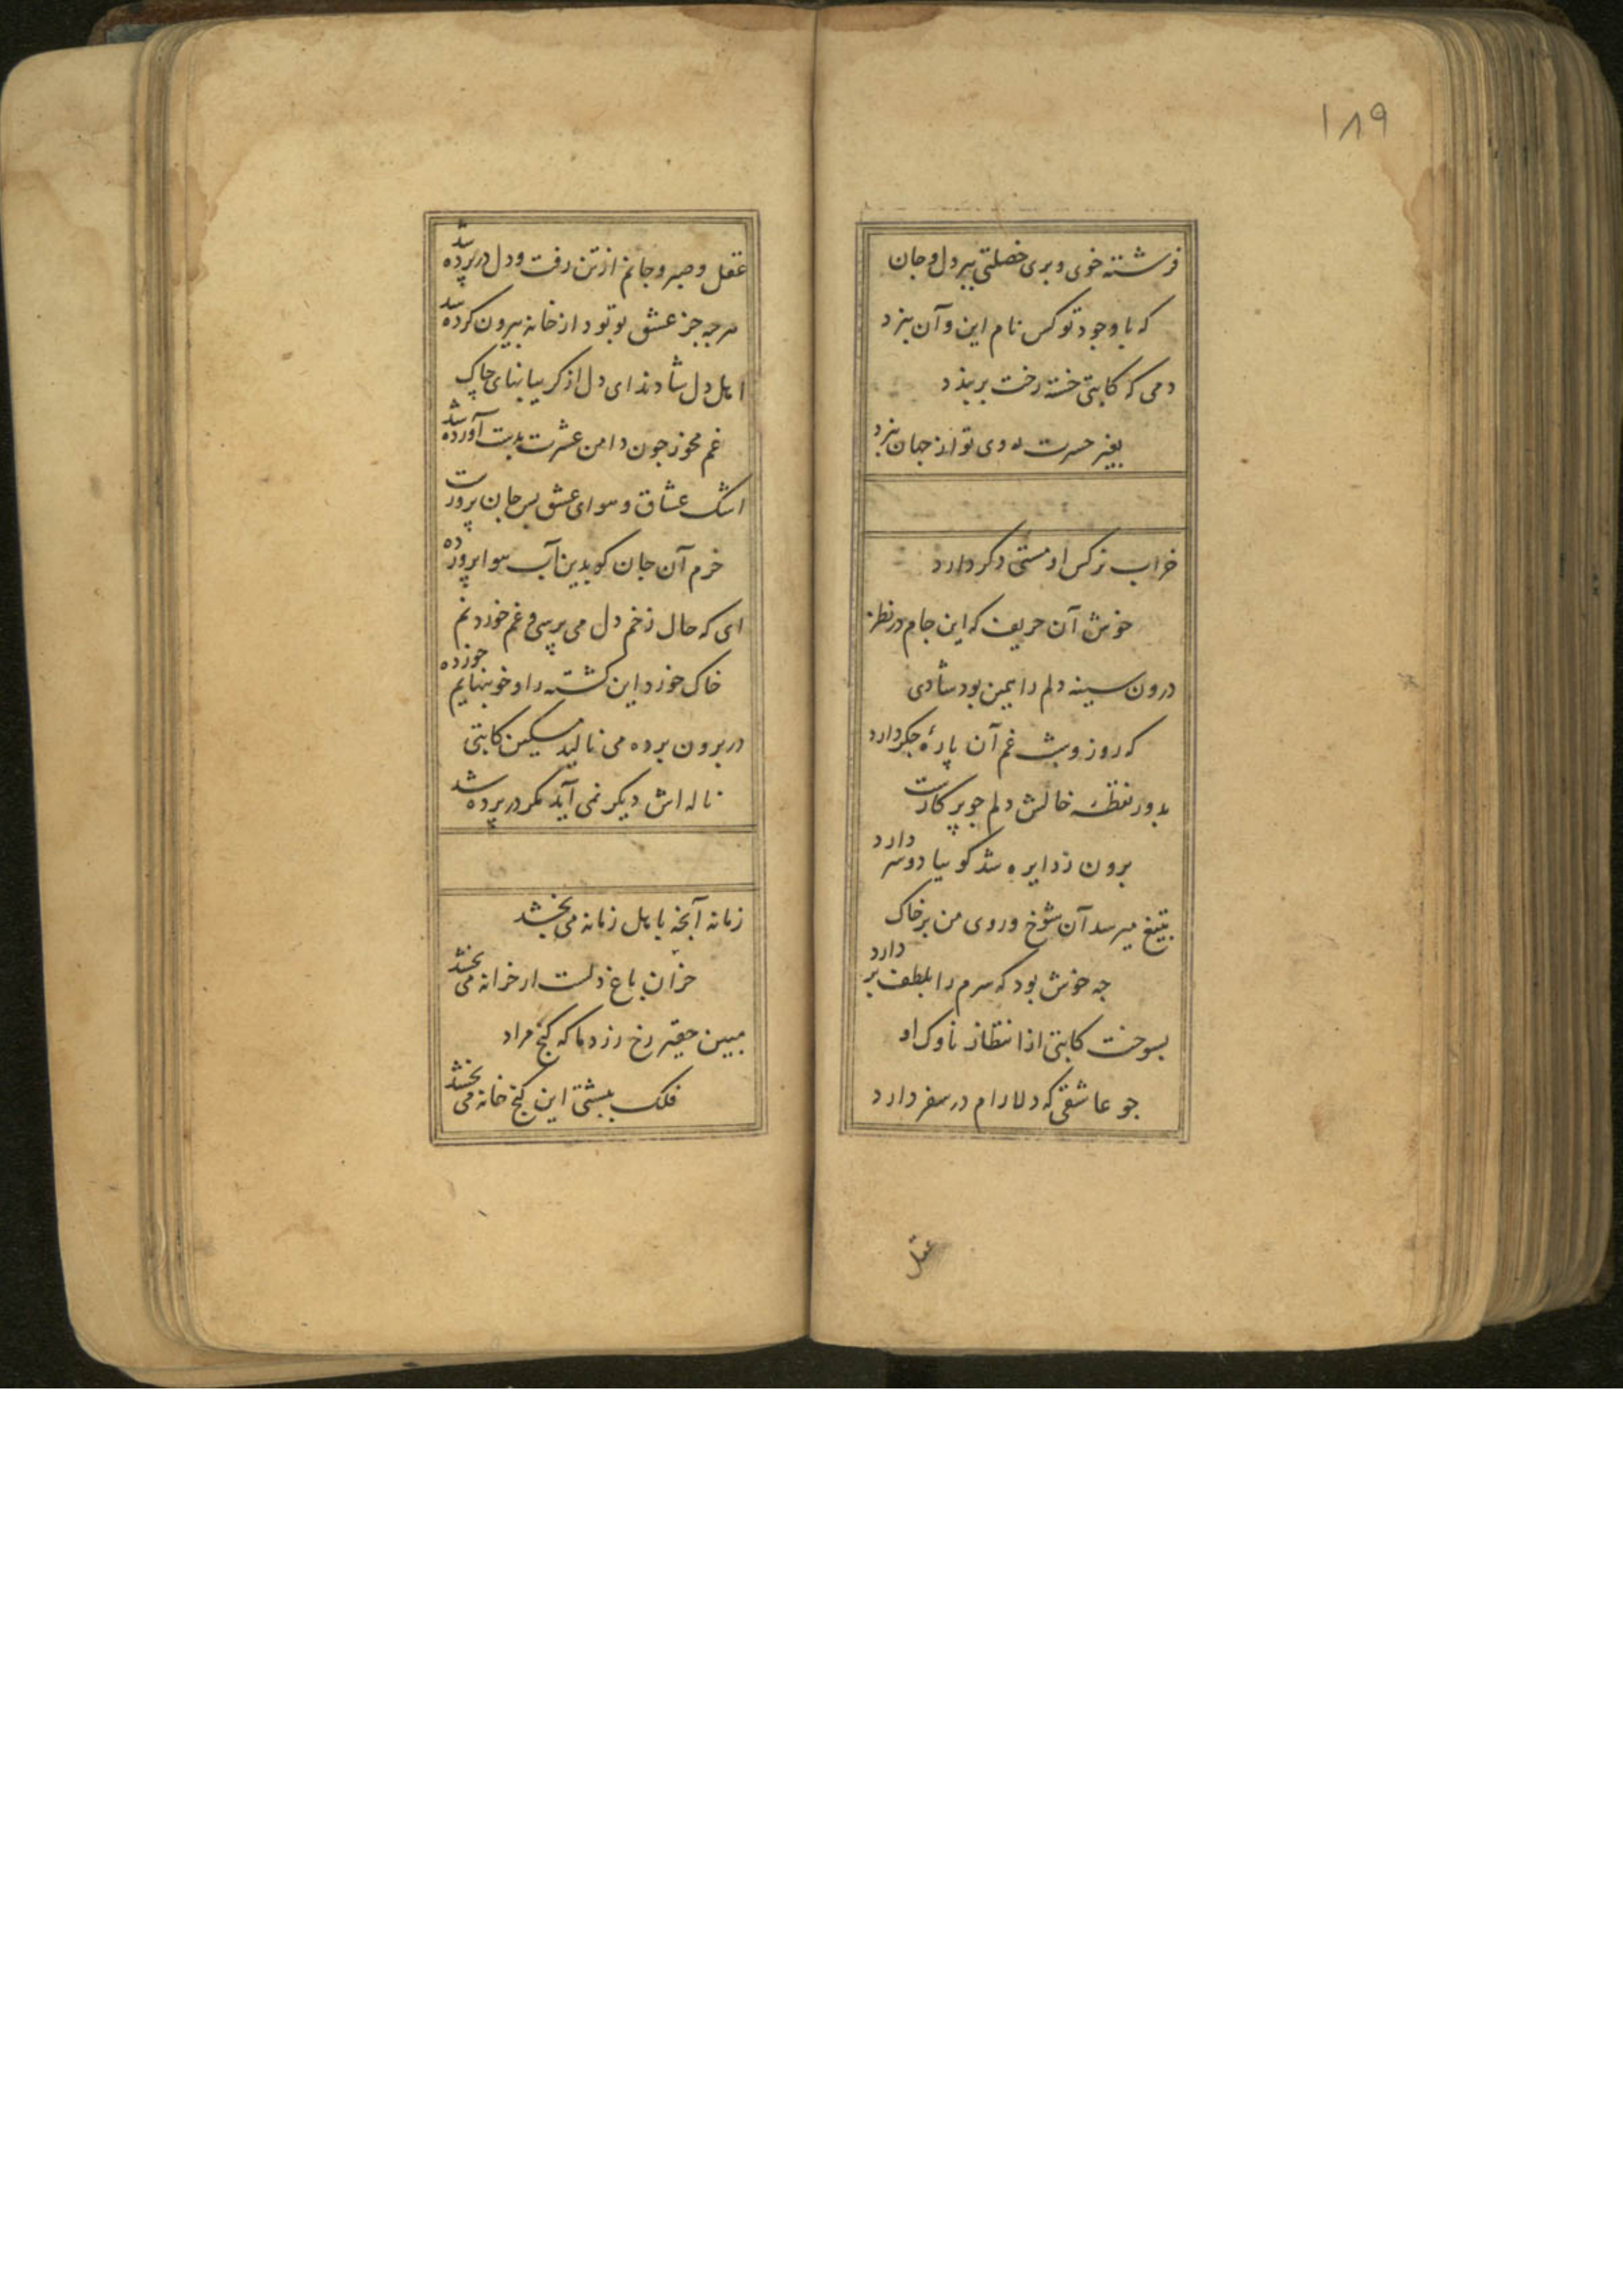 ۱۸۹
فرشته خوی و بری خصلتی ببر دل و جان
که با وجود تو کس نام این و آن نبرد
دمی که کاتبی خسته رخت بربندد
بغیر حسرت روی تو از جهان نبرد
خراب نرکس او مستی دکر دارد
خوش آن حریف که این جام در نظر
درون سینه دلم را همین بود شادی
که روز و شب غم آن پارهٔ جکر دارد
بدور نقطه خالش دلم جو پرکارست
برون ز دایره شد کوییا دو سر دارد
بتیغ میرسد آن شوخ و روی من بر خاک
جه خوش بود که سرم را بلطف بر دارد
بسوخت کاتبی از انتظار ناوک او
جو عاشقی که دلارام در سفر دارد
عقل
عقل و صبر و جانم از تن رفت و دل در پرده شد
هرجه جز عشق تو بود از خانه بیرون کرده شد
اهل دل شادند ای دل از کریبانهای جاک
غم مخور جون دامن عشرت بدست آورده شد
اشک عشاق و هوای عشق بس جان پرورست
خرم آن جان کو بدین آب هوا پرورده
ای که حال زخم دل می پرسی و غم خوردنم
خاک خورد این کشته را و خونبهایم خورده
در برون برده می نالید مسکین کاتبی
ناله اش دیکر نمی آید مکر در پرده شد
زمانه آنجه باهل زمانه می بخشد
خزان باغ دلست ار خزانه می بخشد
مبین حقیر رخ زرد ما که کنج مراد
فلک ببستی این کنج خانه می بخشد